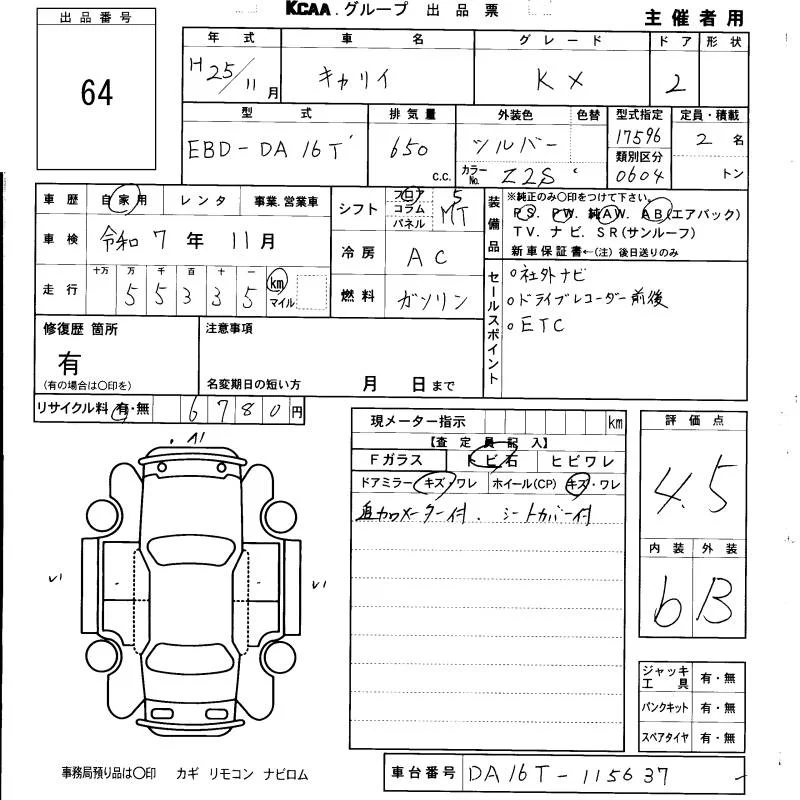 KCAA.グループ 出品票
主催者用
出品番号
64
年式 車名 グレード ドア 形状
H25/11月 キャリイ KX 2
型式 排気量 外装色 色替 型式指定 定員・積載
EBD-DA16T 650 c.c. シルバー 17596 2名
カラーNo. Z2S 類別区分 0604 トン
車歴 自家用 レンタ 事業.営業車
車検 令和7年11月
走行 十万 万 千 百 十 一 km マイル
5 5 3 3 5
シフト フロア コラム パネル 5 MT
冷房 AC
燃料 ガソリン
装備品 ※純正のみ○印をつけて下さい。
PS. PW. 純AW. AB(エアバック)
TV. ナビ. SR(サンルーフ)
新車保証書←(注)後日送りのみ
セールスポイント
○社外ナビ
○ドライブレコーダー前後
○ETC
修復歴 箇所
有
(有の場合は○印を)
注意事項
名変期日の短い方 月 日まで
リサイクル料 有・無 6780円
現メーター指示 km
【査定員記入】
Fガラス トビ石 ヒビワレ
ドアミラー キズ・ワレ ホイール(CP) キズ・ワレ
追加メーター付. シートカバー付
評価点
4.5
内装 外装
6 B
ジャッキ工具 有・無
パンクキット 有・無
スペアタイヤ 有・無
事務局預り品は○印 カギ リモコン ナビロム
車台番号 DA16T-115637